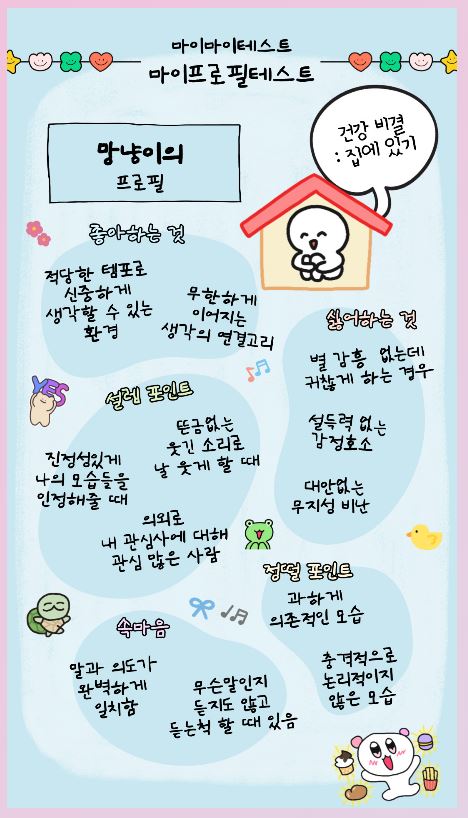 마이마이테스트
마이프로필테스트
건강 비결
: 집에 있기
망냥이의
프로필
좋아하는 것
적당한 템포로
신중하게
생각할 수 있는
환경
무한하게
이어지는
생각의 연결고리
싫어하는 것
별 감흥 없는데
귀찮게 하는 경우
설득력 없는
감정호소
대안없는
무지성 비난
YES
설렘 포인트
진정성있게
나의 모습들을
인정해줄 때
뜬금없는
웃긴 소리로
날 웃게 할 때
의외로
내 관심사에 대해
관심 많은 사람
정떨 포인트
과하게
의존적인 모습
충격적으로
논리적이지
않은 모습
속마음
말과 의도가
완벽하게
일치함
무슨말인지
듣지도 않고
듣는척 할 때 있음